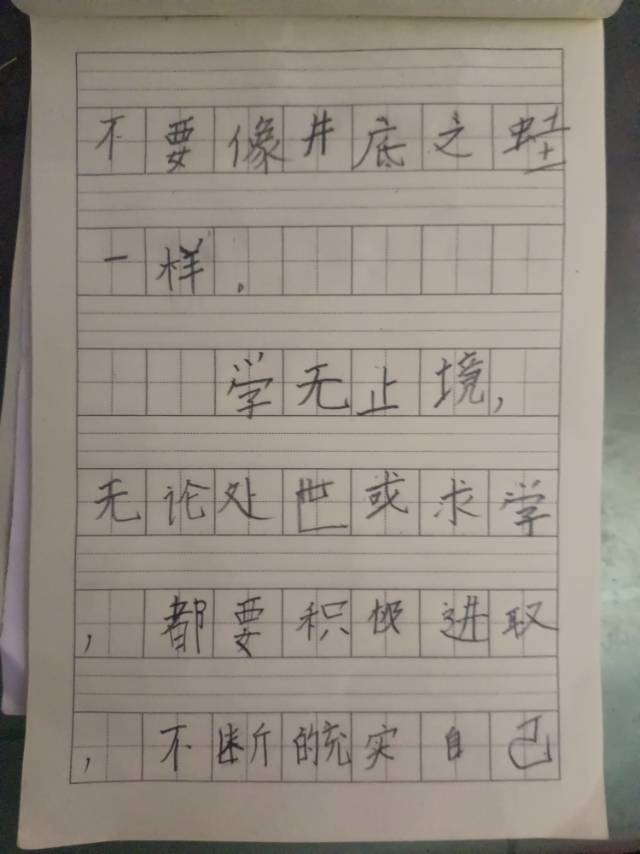 不要像井底之蛙
一样.
学无止境,
无论处世或求学
,都要积极进取
,不断的充实自己